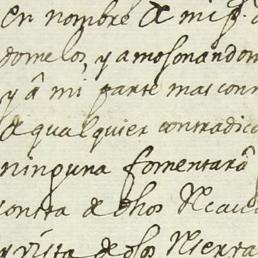 en nombre de mi p.
domelos, y amosonandom
y â mi parte mas conv
de qualquier contradicc
ninguna fomentarâ
contra de dhos
vista de dhos